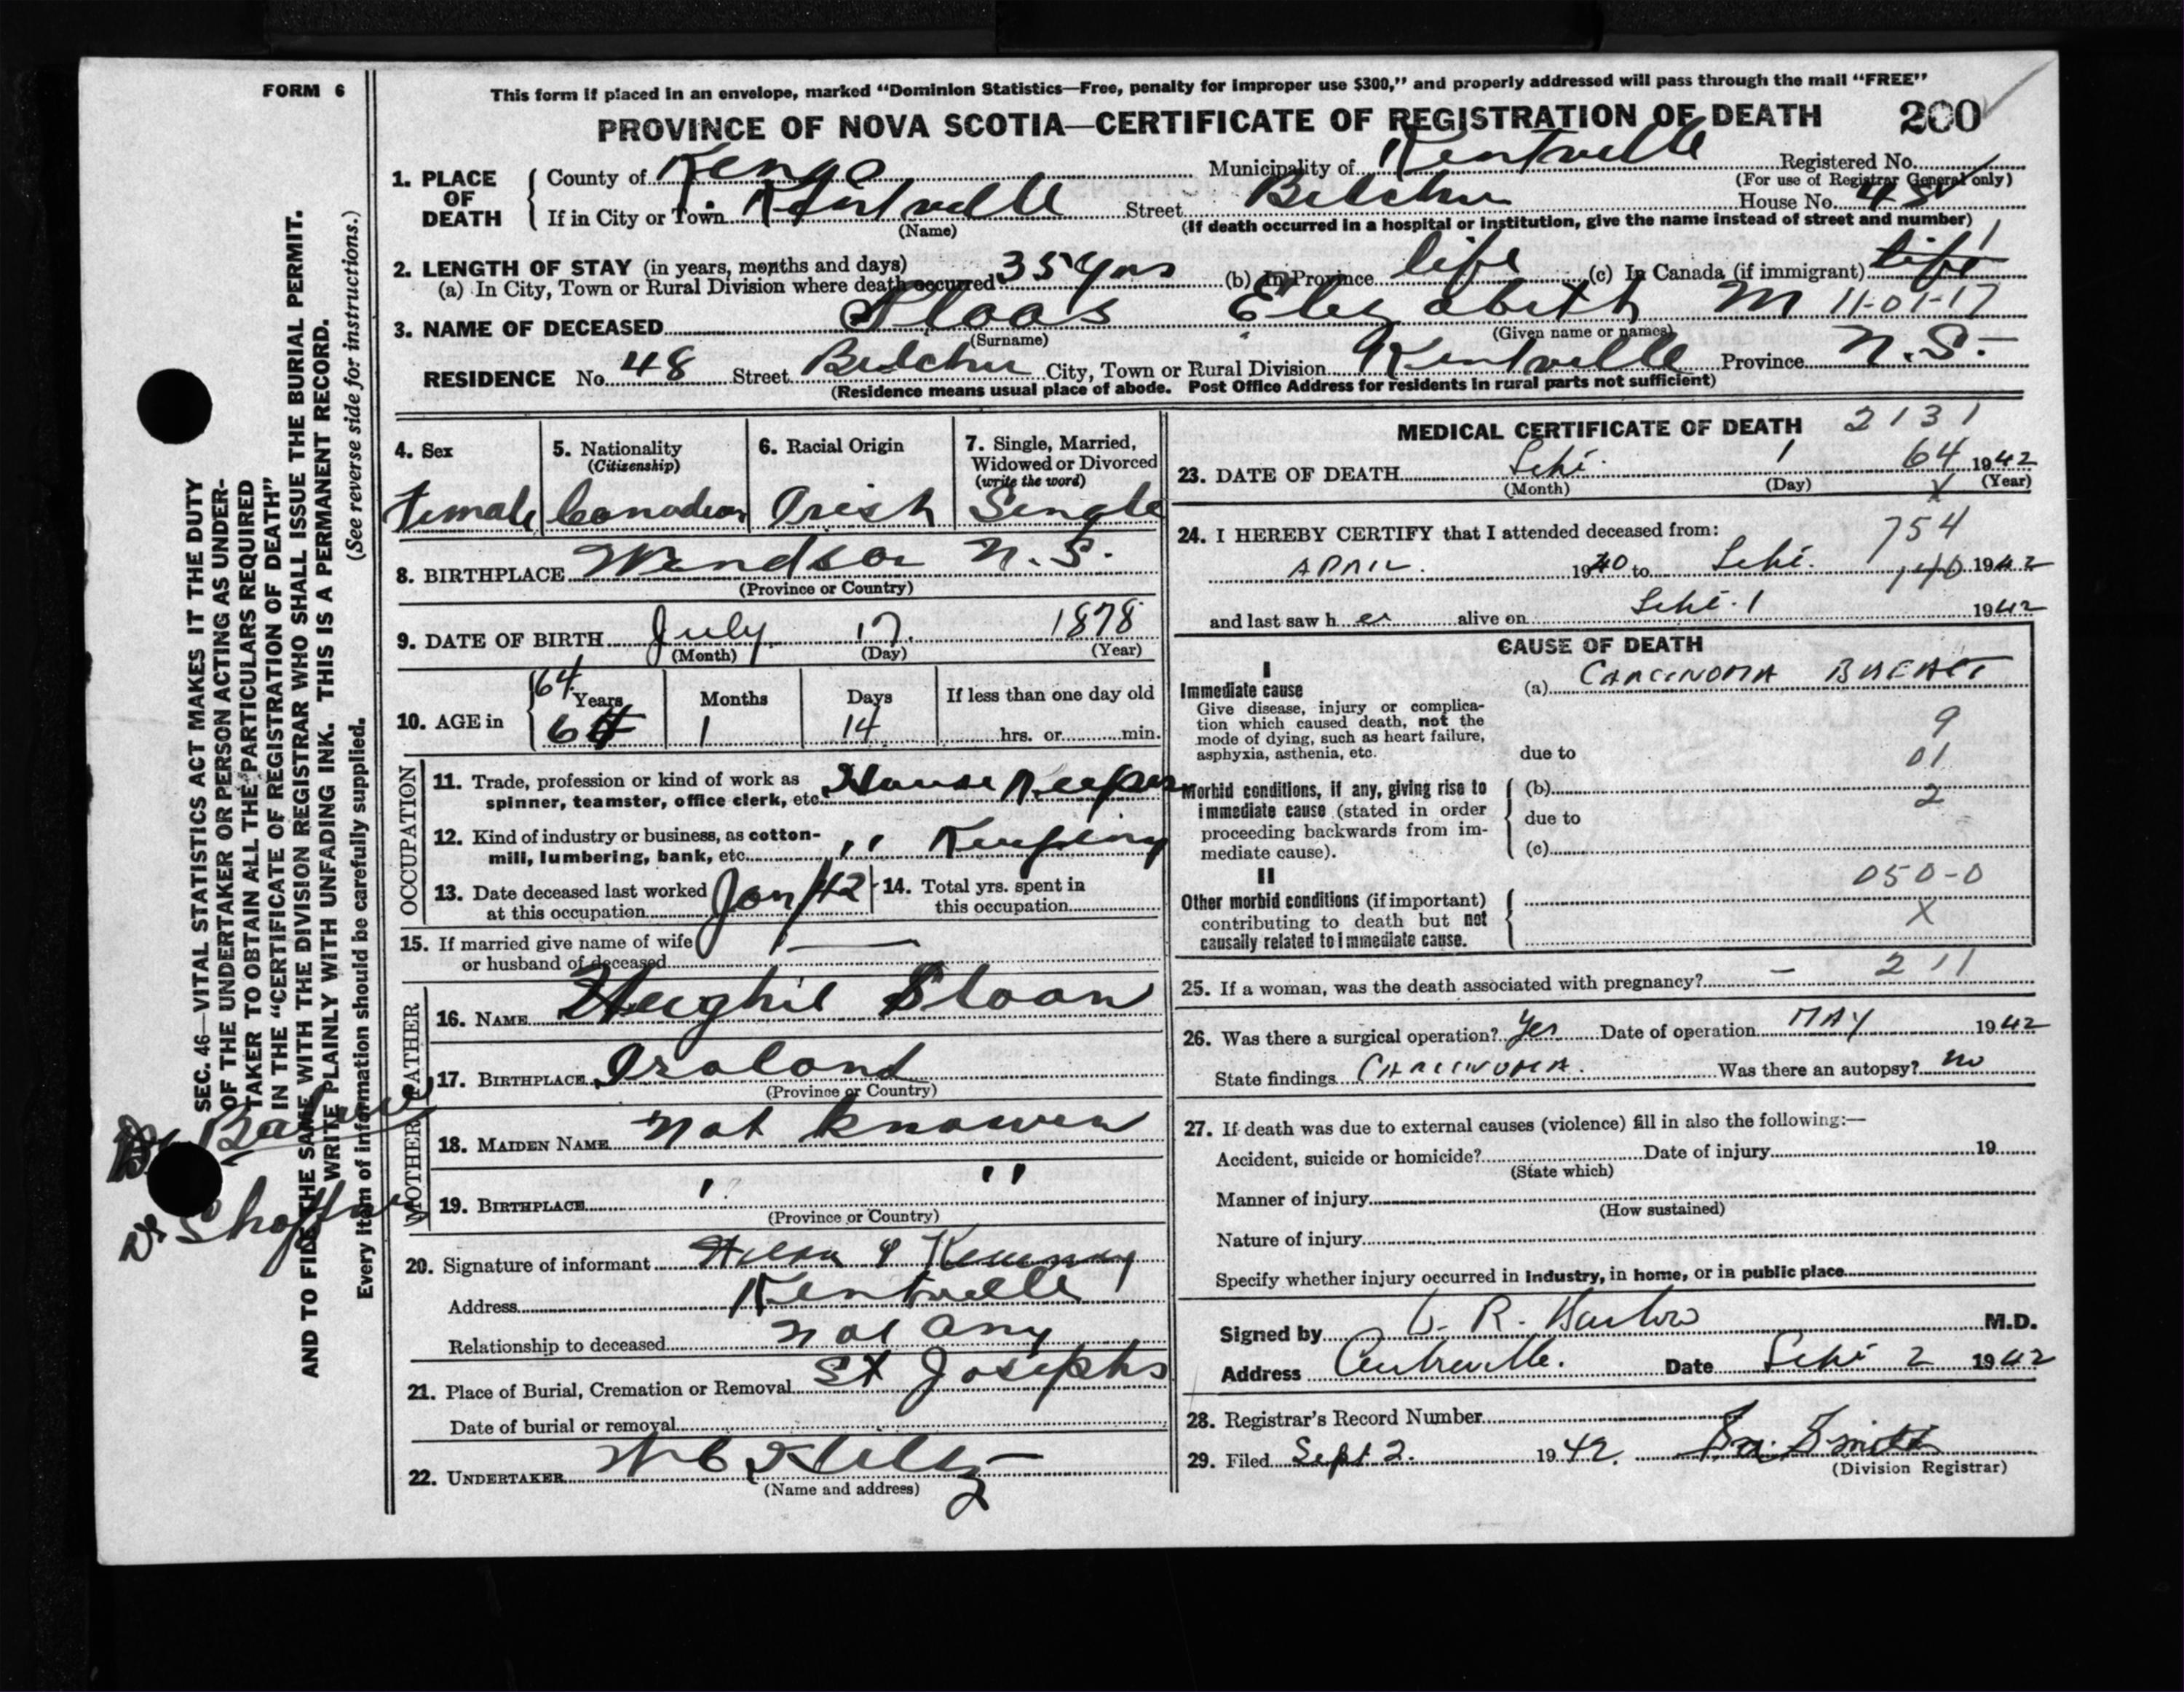 FORM 6
This form if placed in an envelope, marked "Dominion Statistics—Free, penalty for improper use $300," and properly addressed will pass through the mail "FREE"
PROVINCE OF NOVA SCOTIA—CERTIFICATE OF REGISTRATION OF DEATH 200
SEC. 46—VITAL STATISTICS ACT MAKES IT THE DUTY
OF THE UNDERTAKER OR PERSON ACTING AS UNDER-
TAKER TO OBTAIN ALL THE PARTICULARS REQUIRED
IN THE "CERTIFICATE OF REGISTRATION OF DEATH"
AND TO FILE THE SAME WITH THE DIVISION REGISTRAR WHO SHALL ISSUE THE BURIAL PERMIT.
WRITE PLAINLY WITH UNFADING INK. THIS IS A PERMANENT RECORD.
Every item of information should be carefully supplied. (See reverse side for instructions.)
1. PLACE OF DEATH
County of Kings Municipality of Kentville Registered No.
(For use of Registrar General only)
If in City or Town Kentville Street Belcher House No. 48
(Name) (If death occurred in a hospital or institution, give the name instead of street and number)
2. LENGTH OF STAY (in years, months and days)
(a) In City, Town or Rural Division where death occurred 35 yrs (b) In Province life (c) In Canada (if immigrant) life
3. NAME OF DECEASED Sloas Elizabeth M 11-01-17
(Surname) (Given name or names)
RESIDENCE No. 48 Street Belcher City, Town or Rural Division Kentville Province N.S.
(Residence means usual place of abode. Post Office Address for residents in rural parts not sufficient)
4. Sex
Female
5. Nationality
(Citizenship)
Canadian
6. Racial Origin
Irish
7. Single, Married,
Widowed or Divorced
(write the word)
Single
8. BIRTHPLACE Windsor N.S.
(Province or Country)
9. DATE OF BIRTH July 17 1878
(Month) (Day) (Year)
10. AGE in
64 Years Months Days If less than one day old
64 1 14 hrs. or min.
OCCUPATION
11. Trade, profession or kind of work as
spinner, teamster, office clerk, etc. House Keeper
12. Kind of industry or business, as cotton-
mill, lumbering, bank, etc. " Keeping
13. Date deceased last worked
at this occupation Jan/42
14. Total yrs. spent in
this occupation
15. If married give name of wife
or husband of deceased —
FATHER
16. NAME Hughie Sloan
17. BIRTHPLACE Iraland
(Province or Country)
MOTHER
18. MAIDEN NAME Not known
19. BIRTHPLACE " "
(Province or Country)
20. Signature of informant
Address Kentville
Relationship to deceased not any
21. Place of Burial, Cremation or Removal St Josephs
Date of burial or removal
22. UNDERTAKER
(Name and address)
MEDICAL CERTIFICATE OF DEATH 2131
23. DATE OF DEATH Sept. 1 64 1942
(Month) (Day) (Year)
X
24. I HEREBY CERTIFY that I attended deceased from: 754
APRIL. 1940 to Sept. 1 1942
and last saw h er alive on Sept. 1 1942
CAUSE OF DEATH
I
Immediate cause
Give disease, injury or complica-
tion which caused death, not the
mode of dying, such as heart failure,
asphyxia, asthenia, etc.
(a) CARCINOMA BREAST
9
due to 01
Morbid conditions, if any, giving rise to
immediate cause (stated in order
proceeding backwards from im-
mediate cause).
(b) 2
due to
(c)
II
Other morbid conditions (if important)
contributing to death but not
causally related to immediate cause.
050-0
X
25. If a woman, was the death associated with pregnancy? – 211
26. Was there a surgical operation? Yes Date of operation MAY 1942
State findings CARCINOMA. Was there an autopsy? no
27. If death was due to external causes (violence) fill in also the following:—
Accident, suicide or homicide? Date of injury 19
(State which)
Manner of injury
(How sustained)
Nature of injury
Specify whether injury occurred in industry, in home, or in public place
Signed by R. Barlow M.D.
Address Centreville. Date Sept 2 1942
28. Registrar's Record Number
29. Filed Sept 2. 1942. Smith
(Division Registrar)